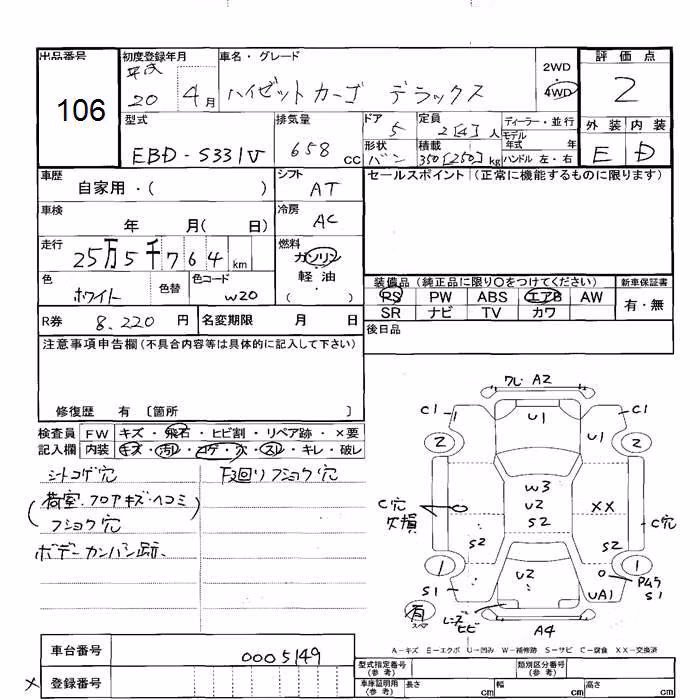 出品番号
106
初度登録年月
平成
20 4月
車名・グレード
ハイゼットカーゴ デラックス
2WD
4WD
評価点
2
外装 内装
E D
型式
EBD-S331V
排気量
658 cc
ドア
5
定員
2[4]人
ディーラー・並行
モデル
年式 年
ハンドル 左・右
形状
バン
積載
350[250]kg
車歴
自家用・( )
シフト
AT
セールスポイント (正常に機能するものに限ります)
車検
年 月( 日)
冷房
AC
走行
25万5千764km
燃料
ガソリン
・
軽油
( )
色
ホワイト
色替
色コード
W20
装備品 (純正品に限り○をつけてください)
PS PW ABS エアB AW
SR ナビ TV カワ
新車保証書
有・無
R券 8,220円
名変期限 月 日
後日品
注意事項申告欄(不具合内容等は具体的に記入して下さい)
修復歴 有 〔箇所 〕
検査員
記入欄
FW キズ・飛石・ヒビ割・リペア跡・×要
内装 キズ・汚れ・コゲ・穴・スレ・キレ・破レ
シートコゲ穴
下廻りフショク穴
(荷室・フロアキズ・ヘコミ
フショク穴)
ボデーカンバン跡.
ワレ A2
C1
C1
U1
U1
2
2
W3
U2
S2
XX
C穴
欠損
C穴
S2
S2
1
1
U2
S1
UA1
S1
有
スペア
レンズ
ヒビ
A4
A-キズ E-エクボ U-凹み W-補修跡 S-サビ C-腐食 XX-交換済
車台番号
0005149
×
登録番号
型式指定番号
(参考)
類別区分番号
(参考)
車庫証明用
(参考)
長さ cm
幅 cm
高さ cm